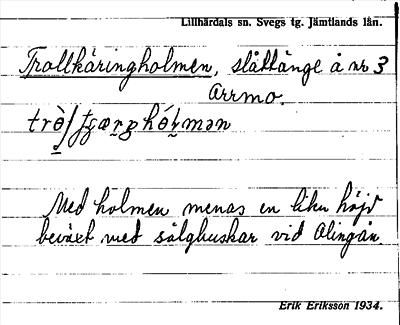 Lillhärdals sn. Svegs tg. Jämtlands län.
Trollkäringholmen, slåttänge å nr 3
Arrmo.
Med holmen menas en liten höjd
beväxt med sälgbuskar vid Alingån.
Erik Eriksson 1934.